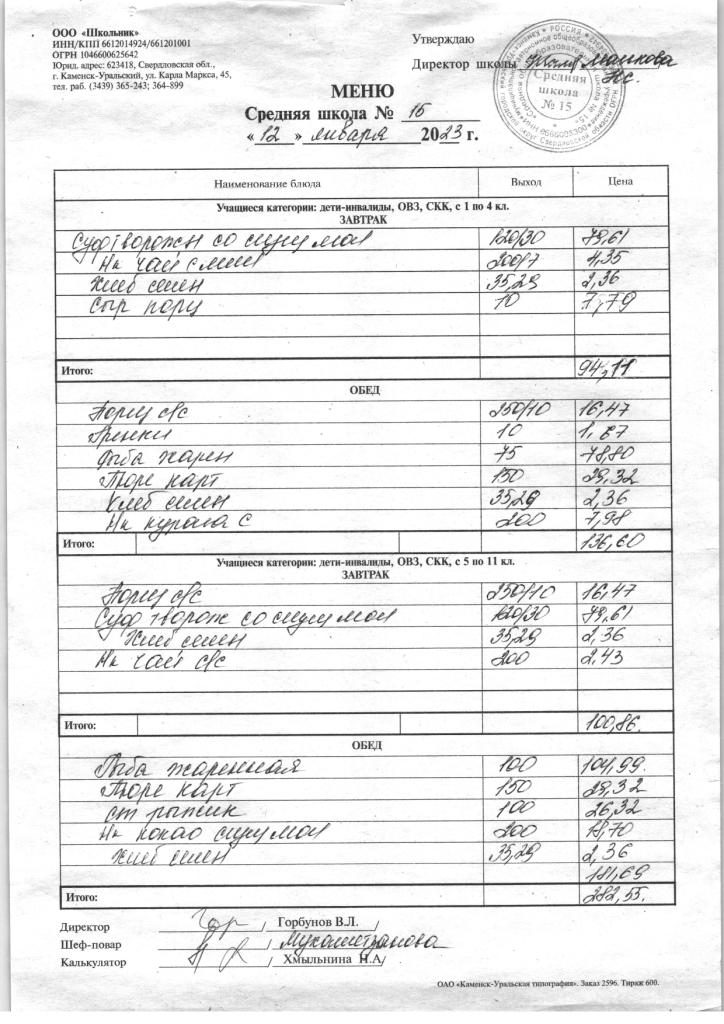 ООО «Школьник»
ИНН/КПП 6612014924/661201001
ОГРН 1046600625642
Юрид. адрес: 623418, Свердловская обл.,
г. Каменск-Уральский, ул. Карла Маркса, 45,
тел. раб. (3439) 365-243; 364-899
Утверждаю
Директор школы
Средняя школа № 15
МЕНЮ
Средняя школа № 15
« 12 » января 2023 г.
Наименование блюда Выход Цена
Учащиеся категории: дети-инвалиды, ОВЗ, СКК, с 1 по 4 кл.
ЗАВТРАК
Суф творожн со сгущ мол 120/30 79,61
Нк чай с лим 200/7 4,35
Хлеб 35,29 2,36
Сыр порц 10 7,79
Итого: 94,11
ОБЕД
Борщ с/с 250/10 16,47
Гренки 10 1,67
Рыба жарен 75 78,80
Пюре карт 150 29,32
Хлеб 35,29 2,36
Нк курага с 200 7,98
Итого: 136,60
Учащиеся категории: дети-инвалиды, ОВЗ, СКК, с 5 по 11 кл.
ЗАВТРАК
Борщ с/с 250/10 16,47
Суф творож со сгущ мол 120/30 79,61
Хлеб 35,29 2,36
Нк чай с/с 200 2,43
Итого: 100,86.
ОБЕД
Рыба жаренная 100 104,99.
Пюре карт 150 29,32
100 26,32
Нк какао сгущ мол 200 18,70
Хлеб 35,29 2,36
181,69
Итого: 282,55.
Директор / Горбунов В.Л. /
Шеф-повар /
Калькулятор / Хмыльнина Н.А/
ОАО «Каменск-Уральская типография». Заказ 2596. Тираж 600.